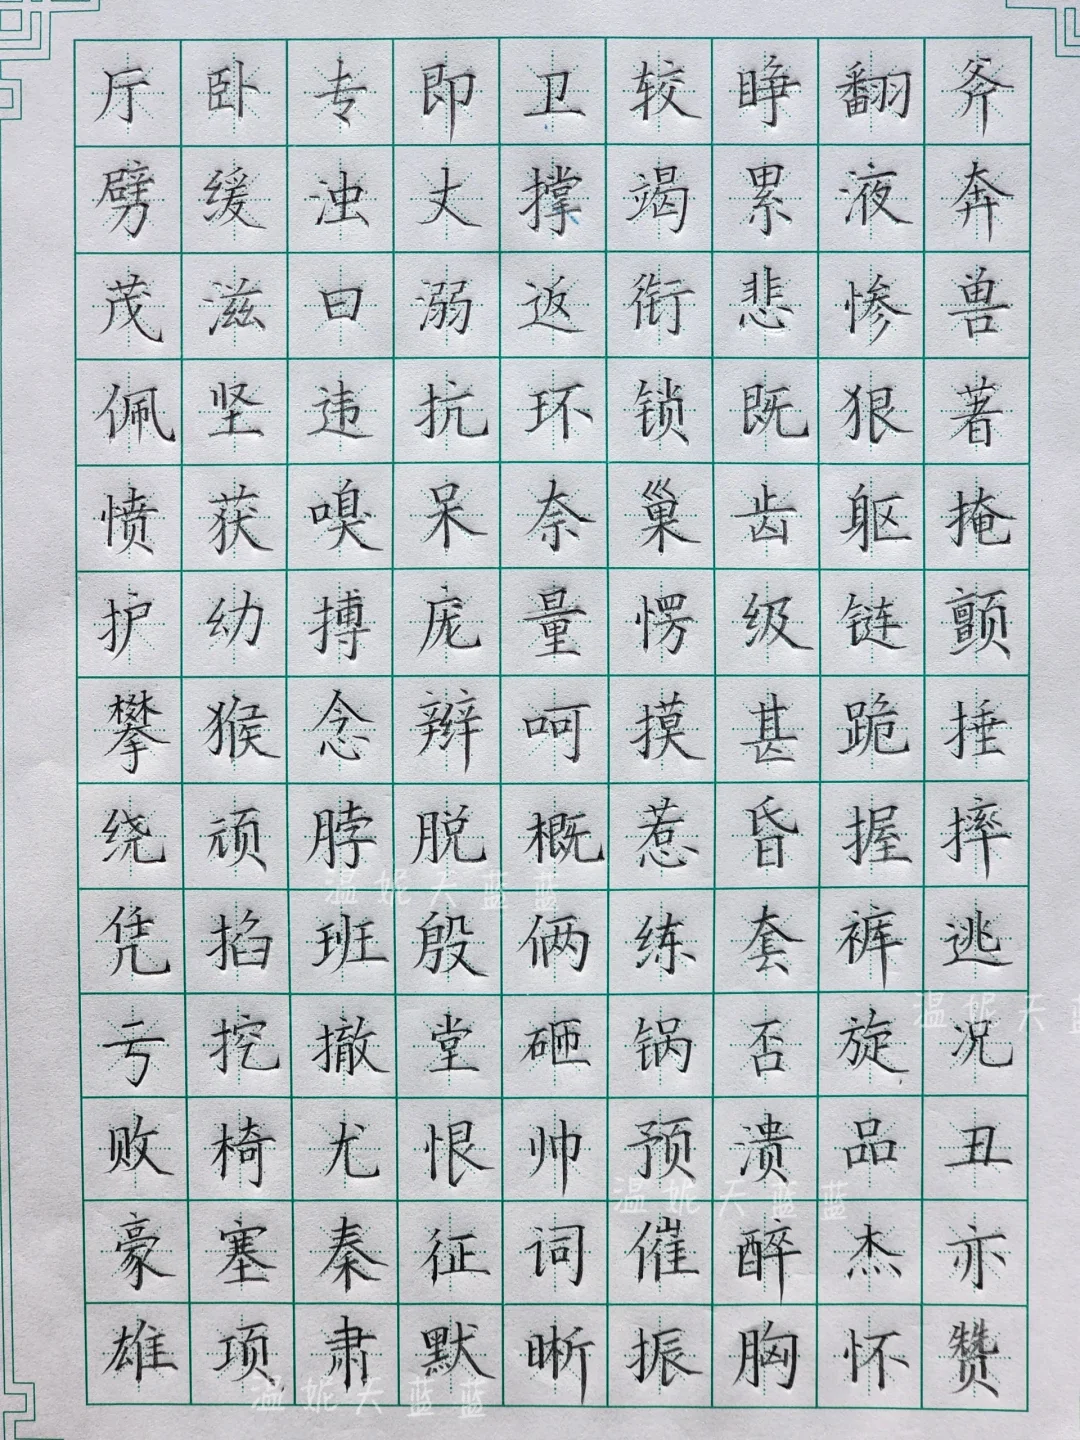 厅卧专即卫较睁翻斧
劈缓浊丈撑竭累液奔
茂滋曰溺返衔悲惨兽
佩坚违抗环锁既狠著
愤获嗅呆奈巢齿躯掩
护幼搏庞量愣级链颤
攀猴念辩呵摸甚跪捶
绕顽脖脱概惹昏握摔
温妮天蓝蓝
凭掐班殷俩练套裤逃
温妮天蓝
亏挖撤堂砸锅否旋况
败椅尤恨帅预溃品丑
温妮天蓝蓝
豪塞秦征词催醉杰亦
雄项肃默晰振胸怀赞
温妮天蓝蓝